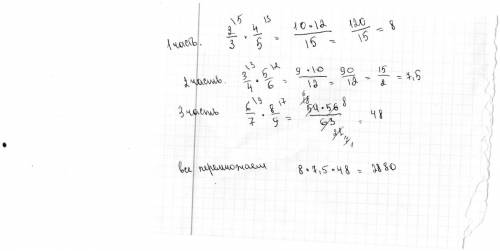 1 часть. 2/3 ^15 · 4/5 ^13 = 10·12/15 = 120/15 = 8
2 часть. 3/4 ^13 · 5/6 ^12 = 9·10/12 = 90/12 = 15/2 = 7,5
3 часть 6/7 ^19 · 8/9 ^17 = 54·56 8/63 = 48
все перемножаем 8·7,5·48 = 2880